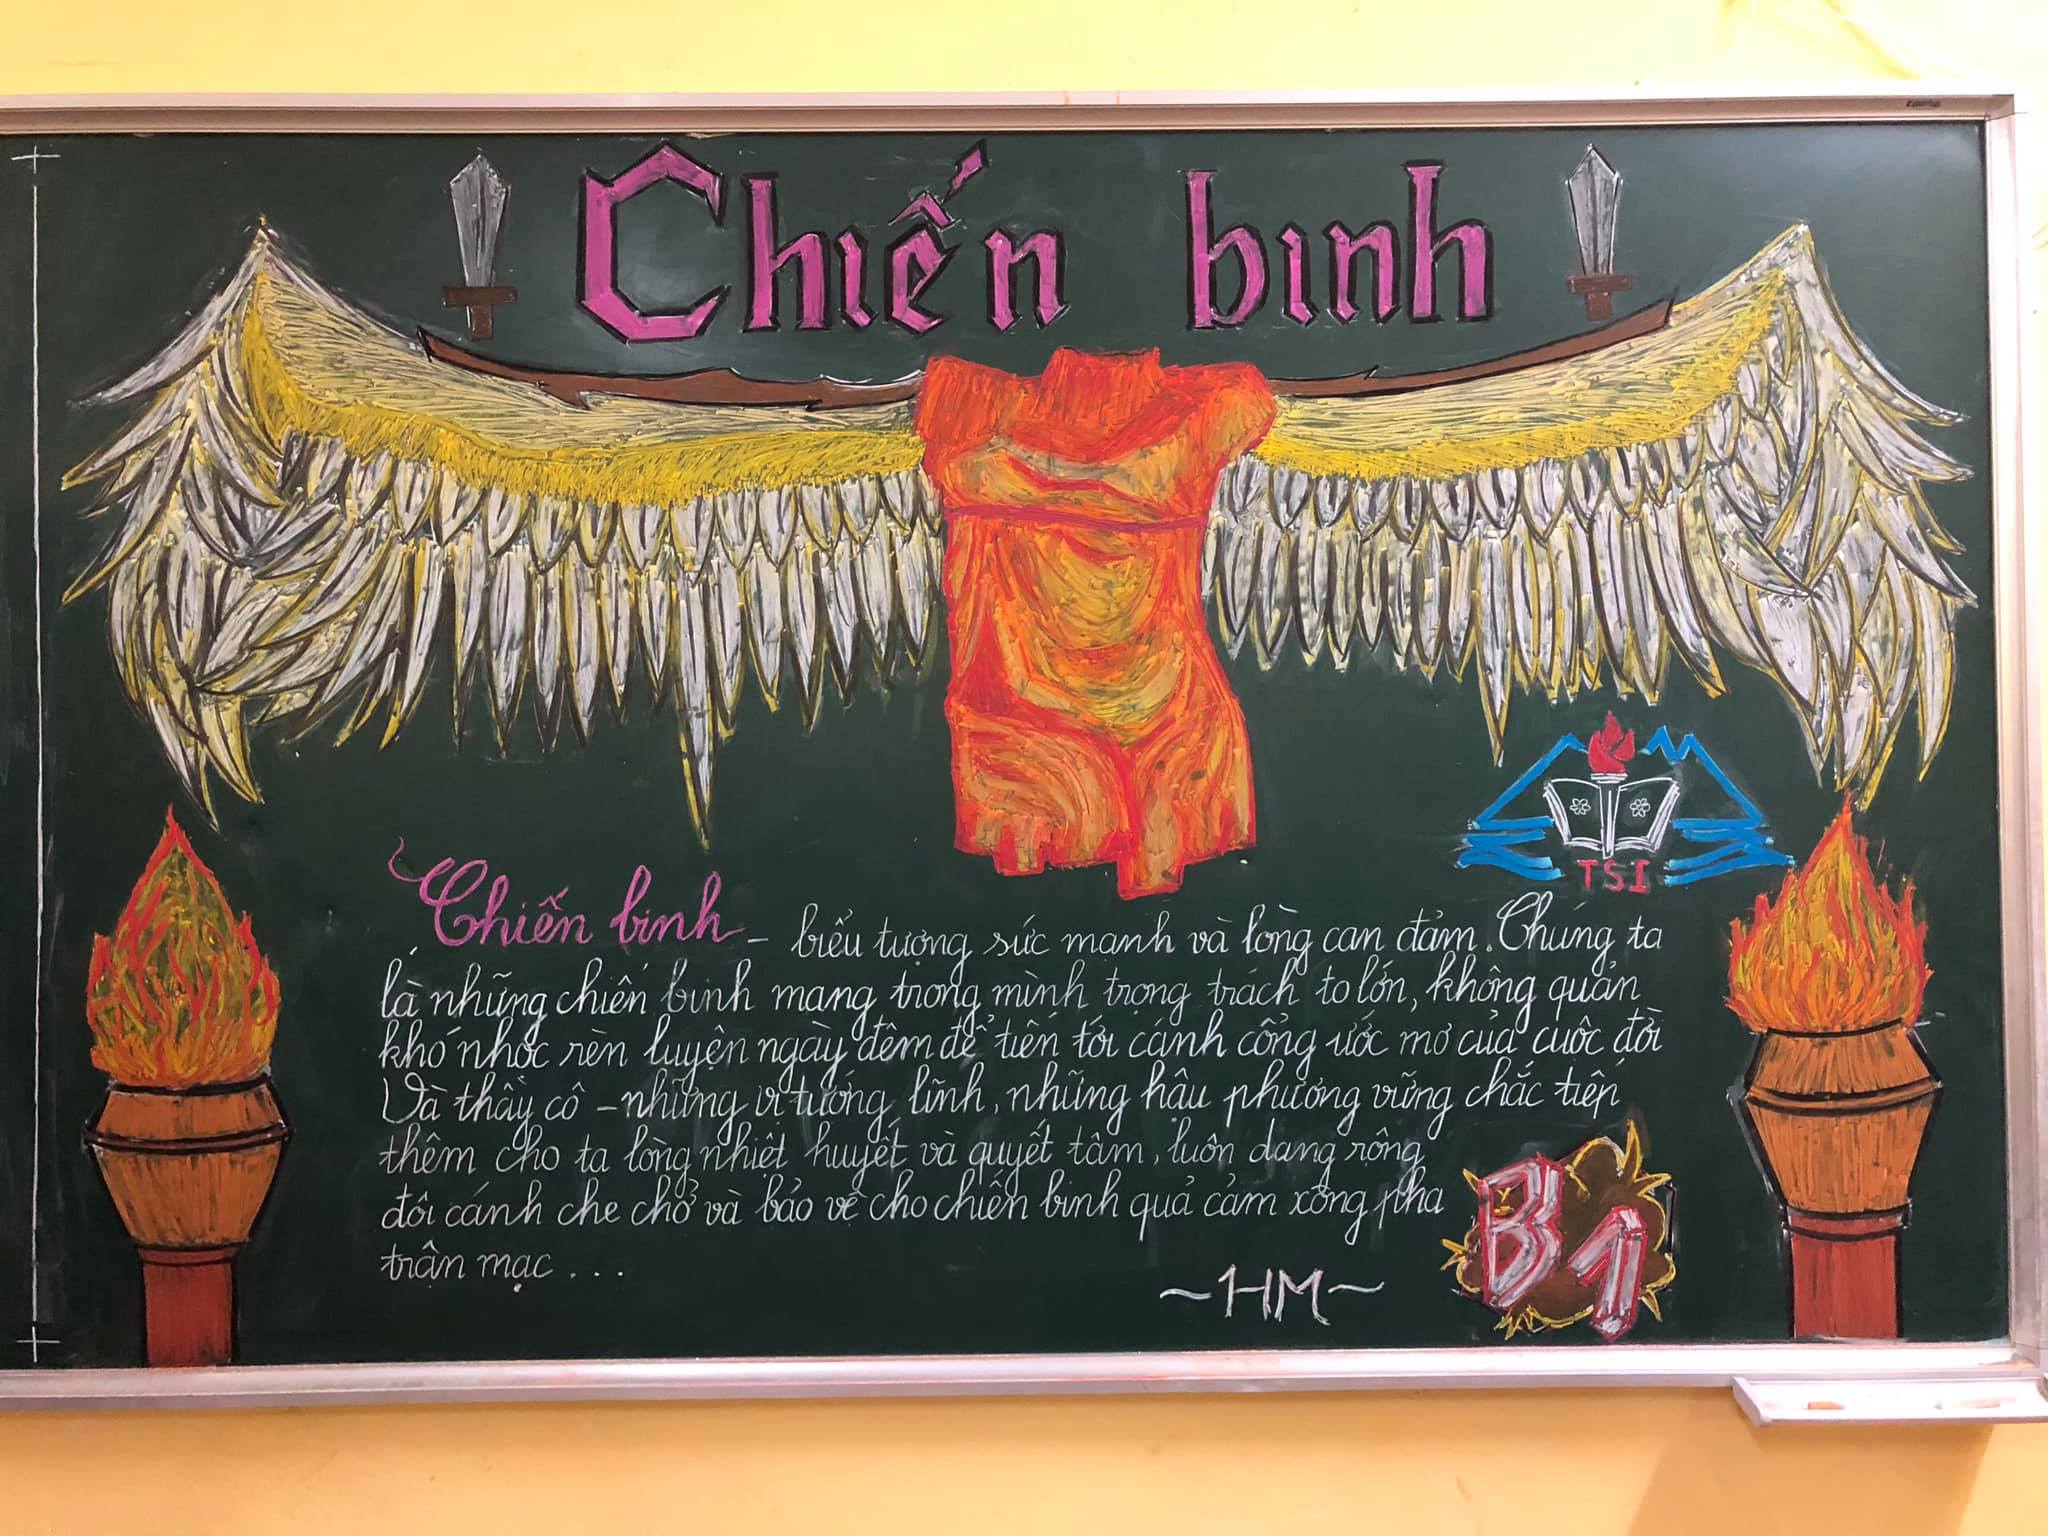 Chiến binh
TSI
Chiến binh - biểu tượng sức mạnh và lòng can đảm. Chúng ta
là những chiến binh mang trong mình trọng trách to lớn, không quản
khó nhọc rèn luyện ngày đêm để tiến tới cánh cổng ước mơ của cuộc đời
Và thầy cô - những vị tướng lĩnh, những hậu phương vững chắc tiếp
thêm cho ta lòng nhiệt huyết và quyết tâm, luôn dang rộng
đôi cánh che chở và bảo vệ cho chiến binh quả cảm xông pha
trận mạc...
~HM~
B1